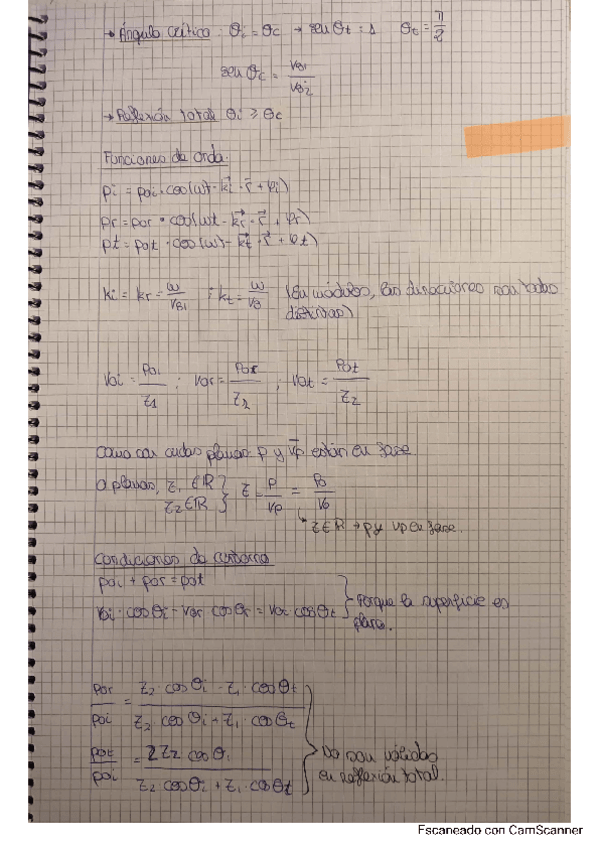 → Ángulo crítico: θi = θc → senθt = 1 θt = π/2
senθc = VB1/VB2
→ Reflexión total θi ≥ θc
Funciones de onda.
pi = poi · cos(ωt - k⃗i · r⃗ + φi)
pr = por · cos(ωt - k⃗r · r⃗ + φr)
pt = pot · cos(ωt - k⃗t · r⃗ + φt)
ki = kr = ω/VB1 ; kt = ω/VB (En módulos, las direcciones son todas
distintas)
Voi = Poi/Z1 ; Vor = Por/Z2 ; Vot = Pot/Z2
Como son ondas planas p y v⃗p están en fase.
O planas, Z1 ∈ R
Z2 ∈ R } Z = P/Vp = Po/Vo
↳ Z ∈ R → p y vp en fase.
Condiciones de contorno
poi + por = pot
Voi · cosθi - Vor cosθi = Vot cosθt } Porque la superficie es
plana.
por/poi = (Z2 · cosθi - Z1 · cosθt)/(Z2 · cosθi + Z1 · cosθt)
pot/poi = 2Z2 cosθi/(Z2 cosθi + Z1 · cosθt) } No son válidas
en reflexión total.
Escaneado con CamScanner